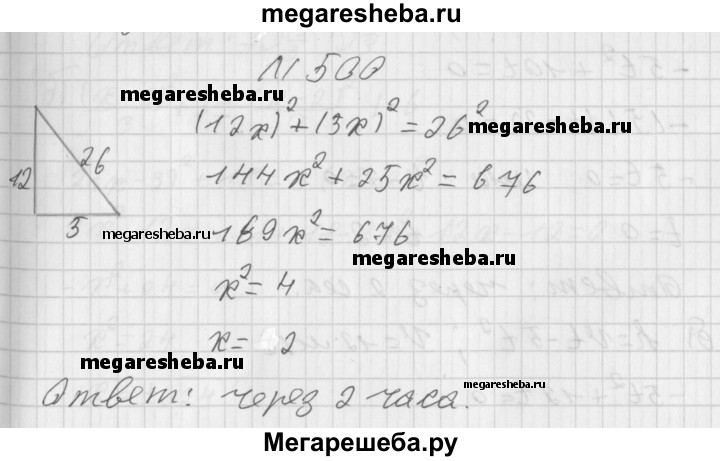 megaresheba.ru
N 500
megaresheba.ru
(12x)² + (5x)² = 26²
megaresheba.ru
12
26
5
144x² + 25x² = 676
megaresheba.ru
169x² = 676
megaresheba.ru
x² = 4
x = 2
megaresheba.ru
megaresheba.ru
Ответ: через 2 часа.
Мегарешеба.ру